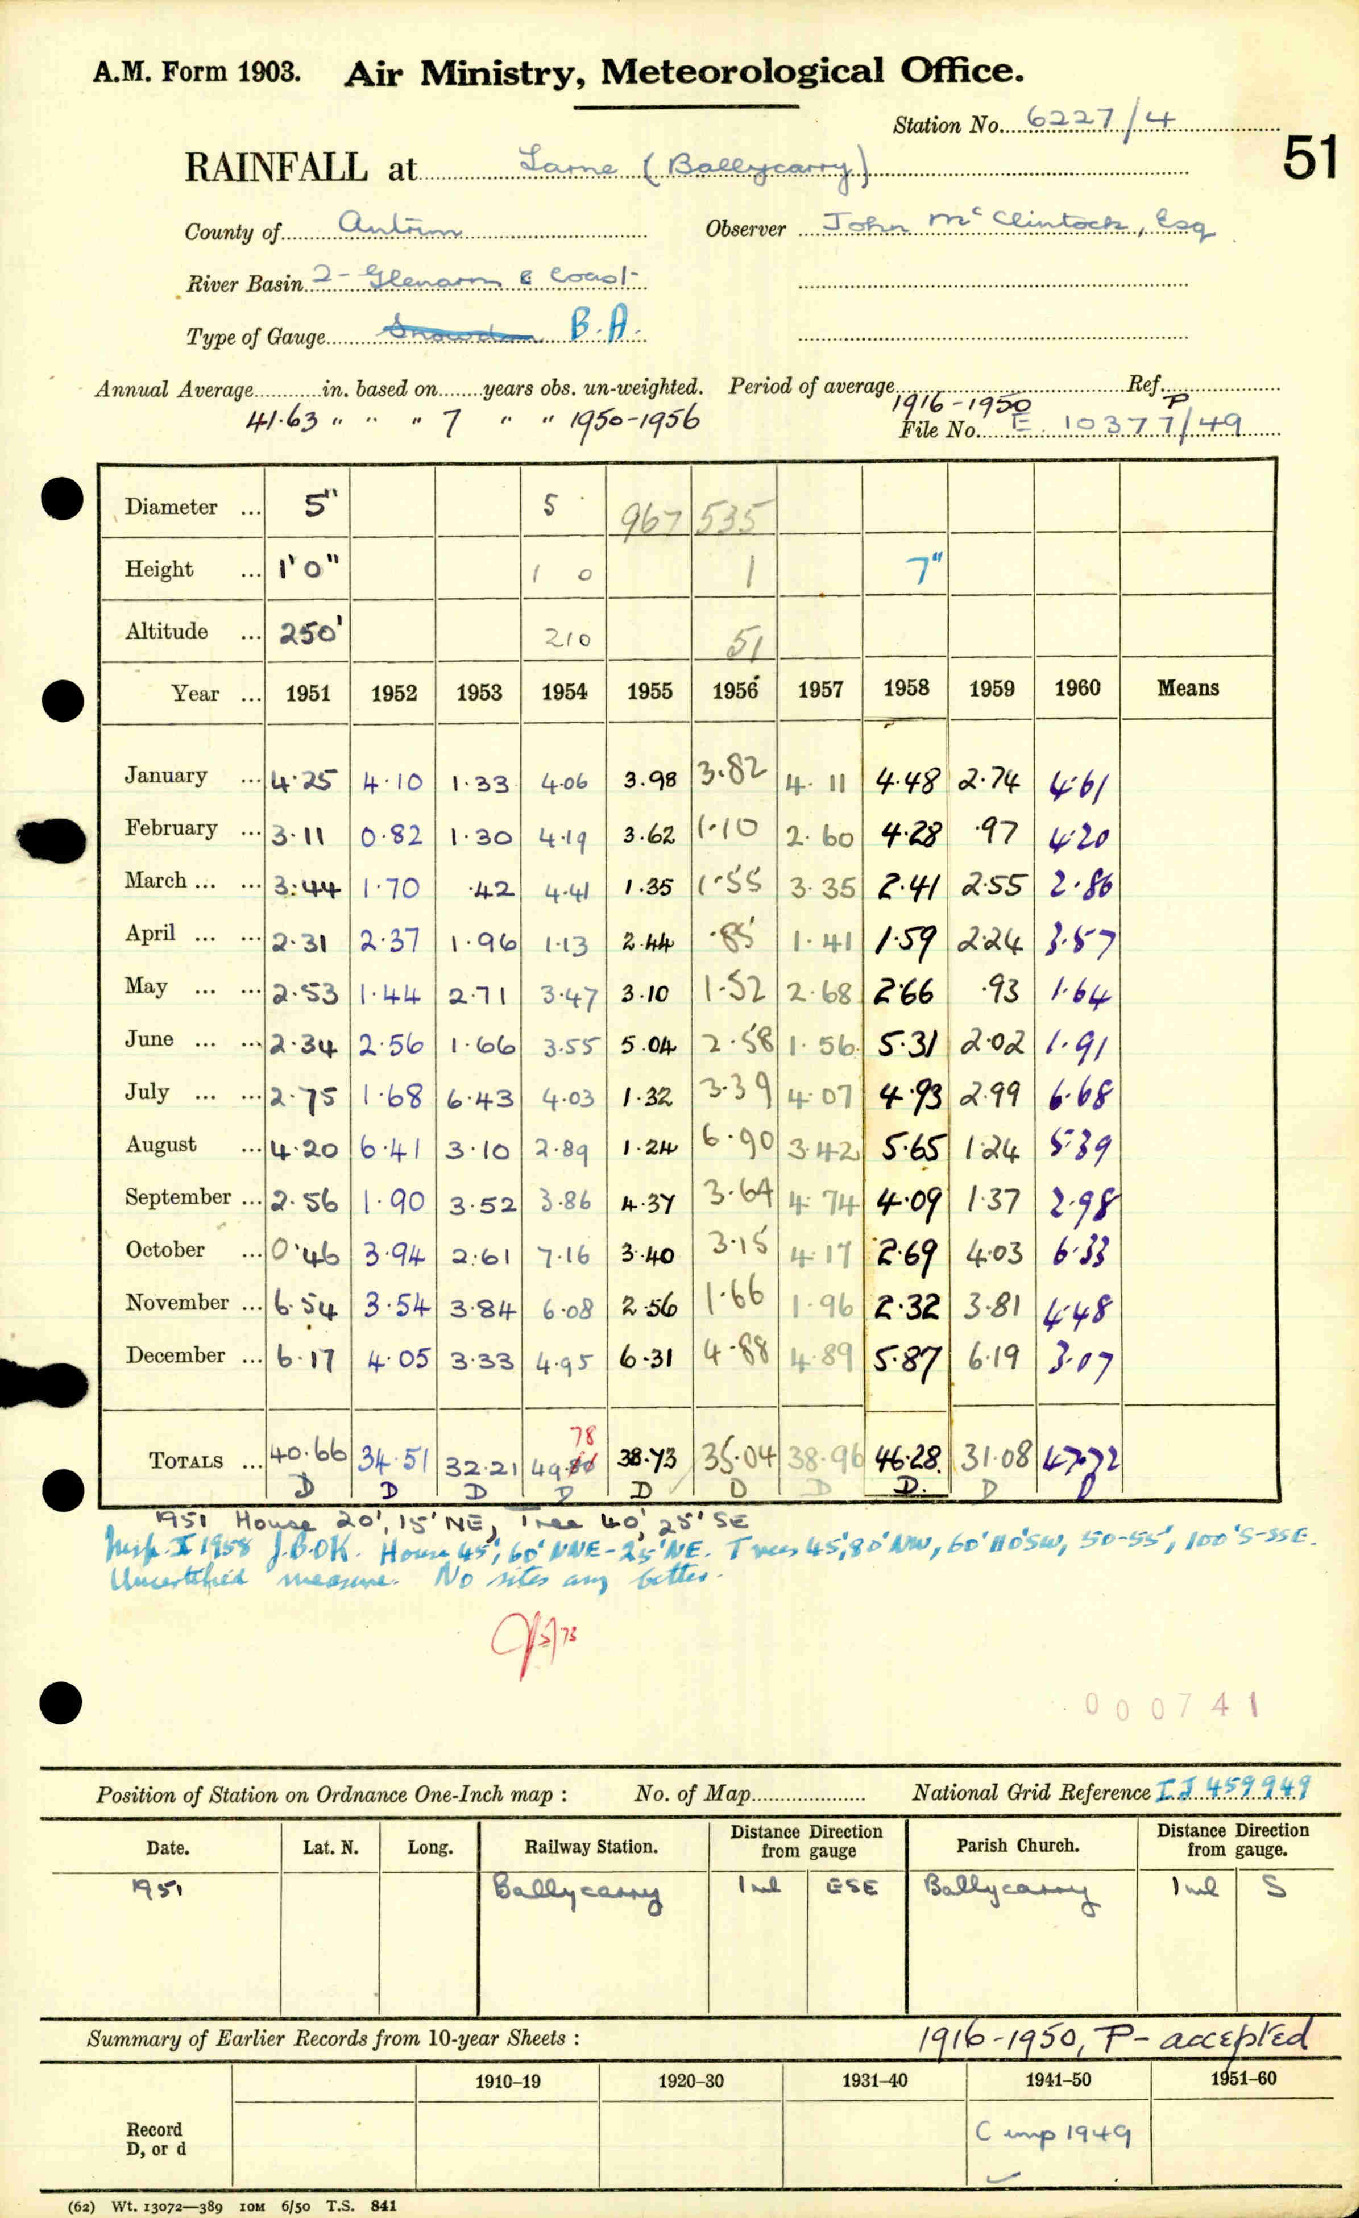 A.M. Form 1903. Air Ministry, Meteorological Office.
Station No. 6227/4
51
RAINFALL at Larne (Ballycarry)
County of Antrim Observer John McClintock, Esq
River Basin 2 - Glenarm & Coast
Type of Gauge Snowdon B.A.
Annual Average in. based on years obs. un-weighted. Period of average 1916-1950 Ref. P
41.63 " " " 7 " " 1950-1956 File No. E 10377/49
Diameter ... 5" 5 967 535
Height ... 1'0" 1 0 1 7"
Altitude ... 250' 210 51
Year ... 1951 1952 1953 1954 1955 1956 1957 1958 1959 1960 Means
January ... 4.25 4.10 1.33 4.06 3.98 3.82 4.11 4.48 2.74 4.61
February ... 3.11 0.82 1.30 4.19 3.62 1.10 2.60 4.28 .97 4.20
March ... ... 3.44 1.70 .42 4.41 1.35 1.55 3.35 2.41 2.55 2.86
April ... ... 2.31 2.37 1.96 1.13 2.44 .85 1.41 1.59 2.24 3.57
May ... ... 2.53 1.44 2.71 3.47 3.10 1.52 2.68 2.66 .93 1.64
June ... ... 2.34 2.56 1.66 3.55 5.04 2.58 1.56 5.31 2.02 1.91
July ... ... 2.75 1.68 6.43 4.03 1.32 3.39 4.07 4.93 2.99 6.68
August ... 4.20 6.41 3.10 2.89 1.24 6.90 3.42 5.65 1.24 5.39
September ... 2.56 1.90 3.52 3.86 4.37 3.64 4.74 4.09 1.37 2.98
October ... 0.46 3.94 2.61 7.16 3.40 3.15 4.17 2.69 4.03 6.33
November ... 6.54 3.54 3.84 6.08 2.56 1.66 1.96 2.32 3.81 4.48
December ... 6.17 4.05 3.33 4.95 6.31 4.88 4.89 5.87 6.19 3.07
78
TOTALS ... 40.66 34.51 32.21 49. 38.73 35.04 38.96 46.28 31.08 47.72
D D D D D D D D. D D
1951 House 20', 15' NE, Tree 40', 25' SE
Insp. I 1958 J.B.OK. House 45', 60' NNE-25' NE. Trees 45', 80' NW, 60' 110' SW, 50-55', 100' S-SSE.
Uncertified measure. No sites any better.
000741
Position of Station on Ordnance One-Inch map : No. of Map National Grid Reference IJ 459949
Date. Lat. N. Long. Railway Station. Distance Direction from gauge Parish Church. Distance Direction from gauge.
1951 Ballycarry 1 ml ESE Ballycarry 1 ml S
Summary of Earlier Records from 10-year Sheets : 1916-1950, P- accepted
1910–19 1920–30 1931–40 1941–50 1951–60
Record
D, or d
C imp 1949
(62) Wt. 13072—389 10M 6/50 T.S. 841